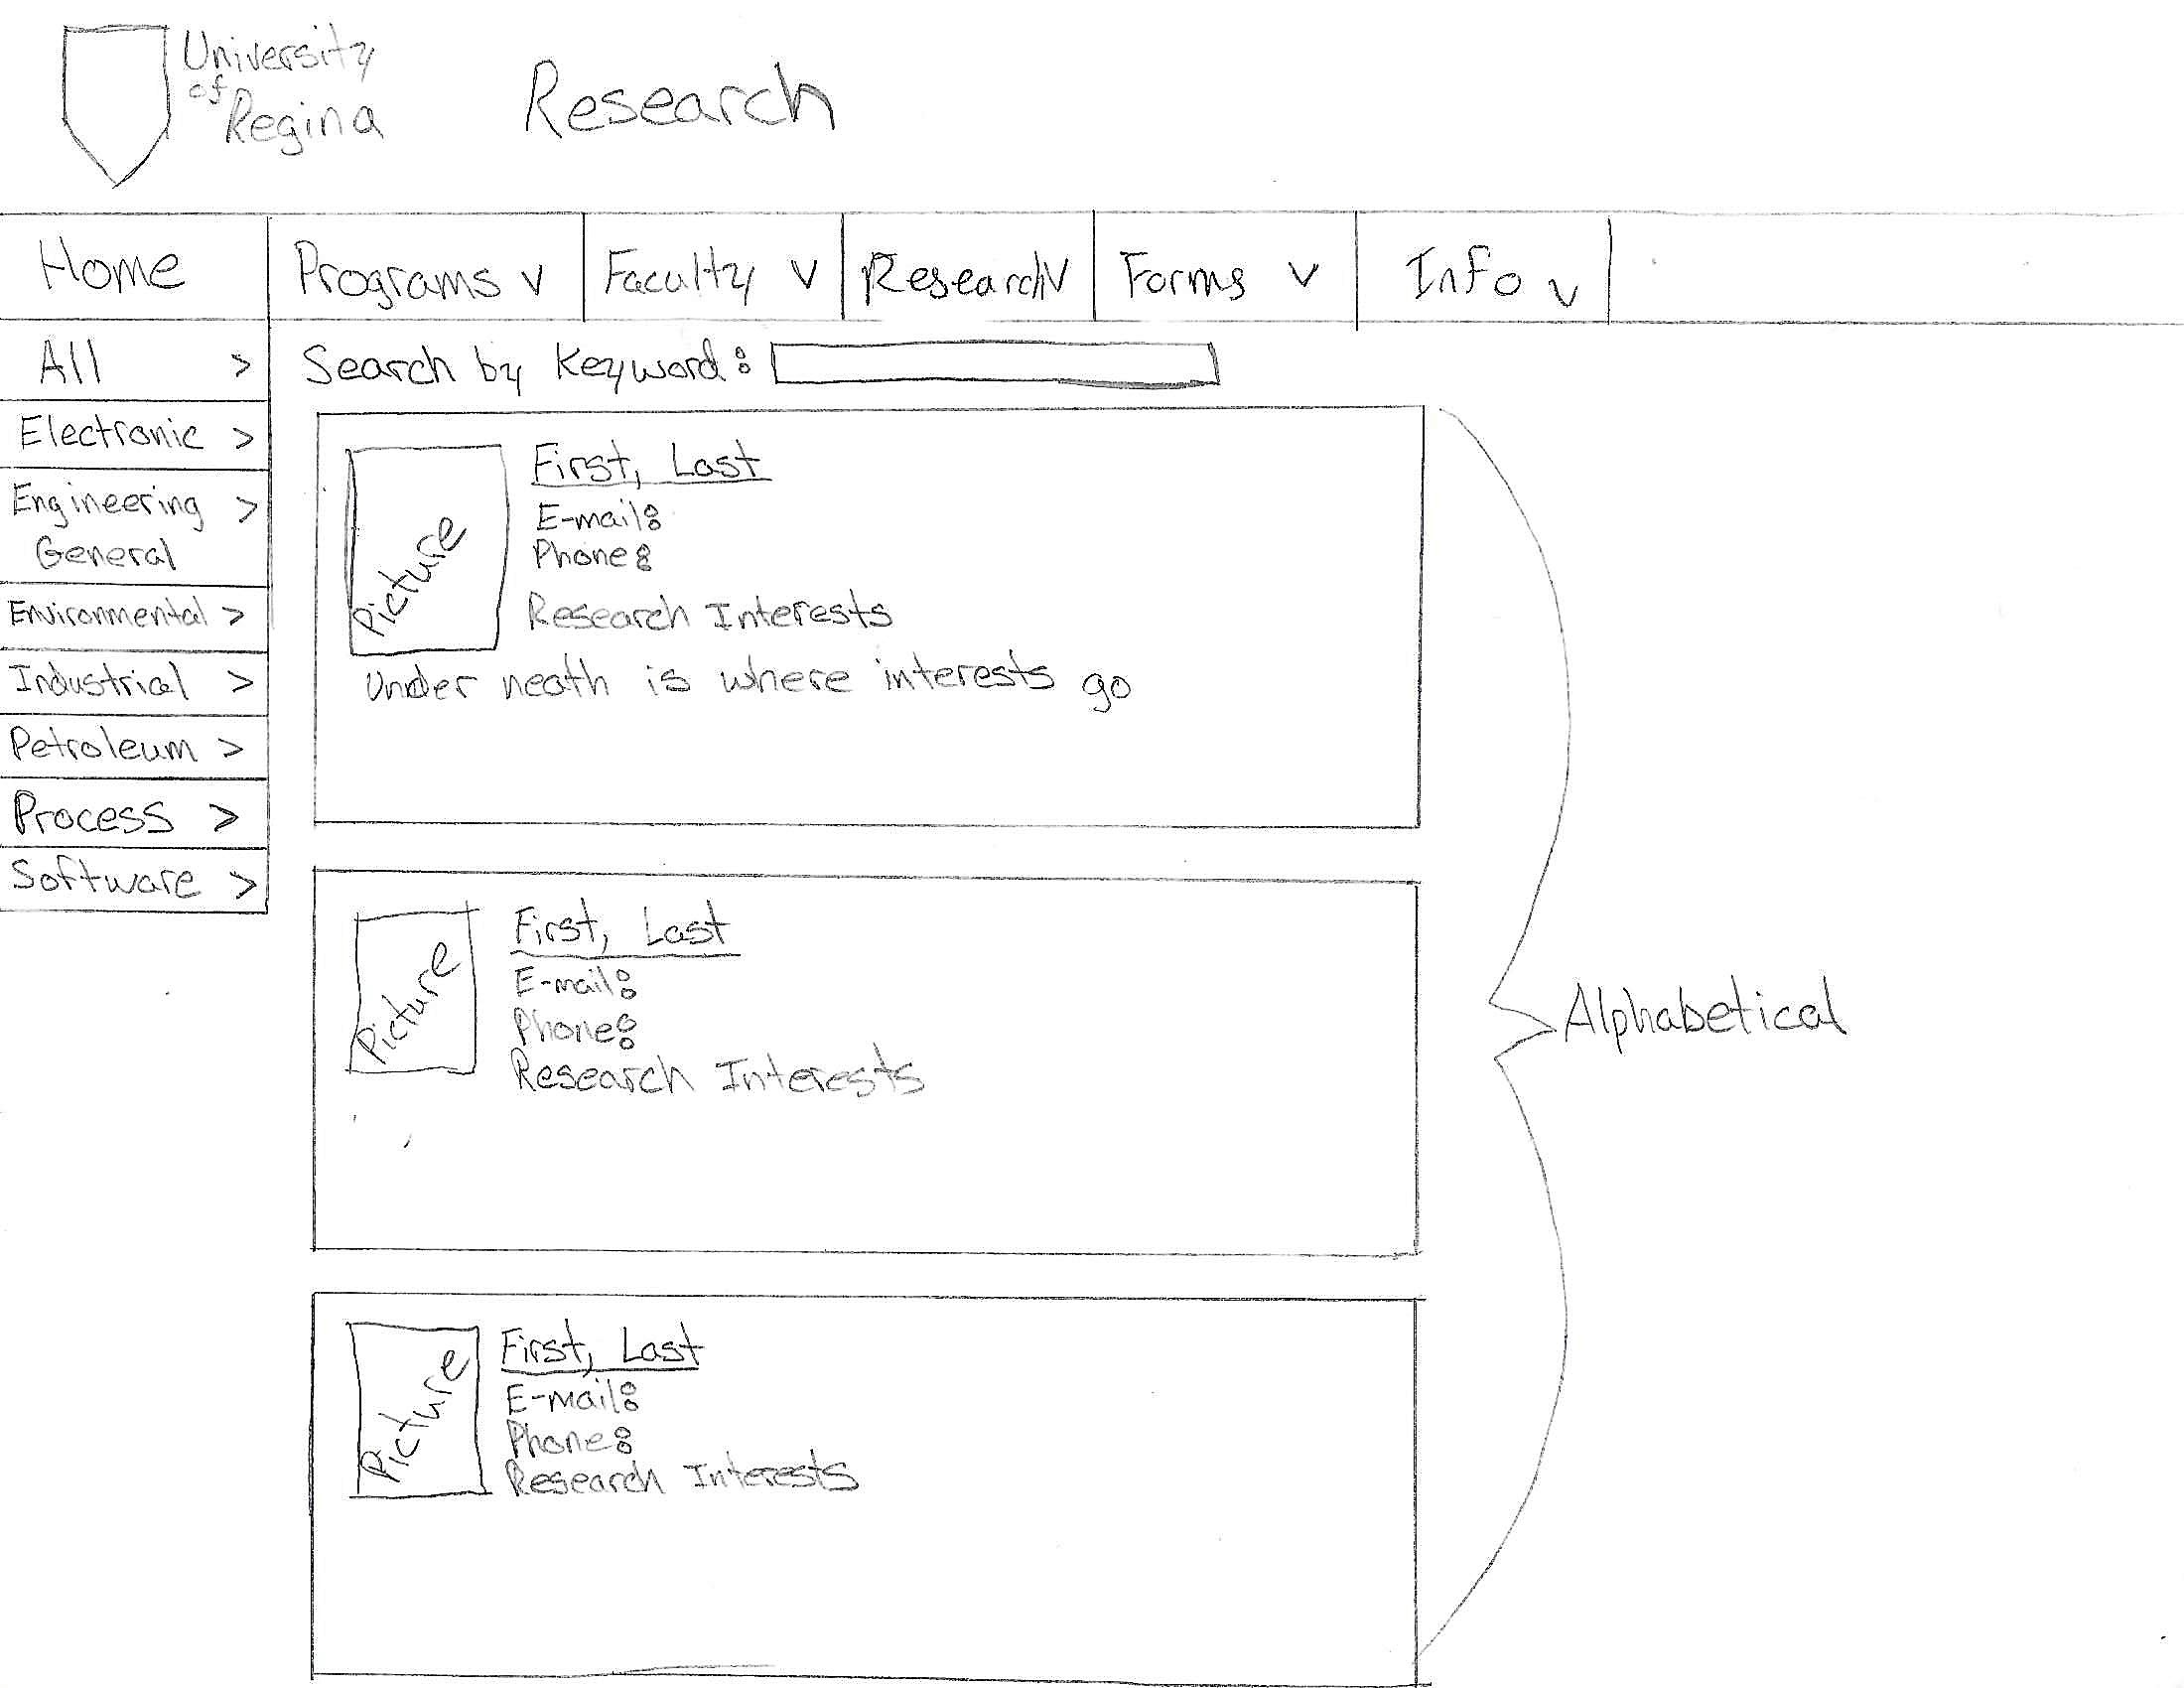 University
of
Regina
Research
Home
Programs v
Faculty v
Research v
Forms v
Info v
All >
Electronic >
Engineering >
General
Environmental >
Industrial >
Petroleum >
Process >
Software >
Search by Keyword:
Picture
First, Last
E-mail:
Phone:
Research Interests
Under neath is where interests go
Picture
First, Last
E-mail:
Phone:
Research Interests
Picture
First, Last
E-mail:
Phone:
Research Interests
Alphabetical